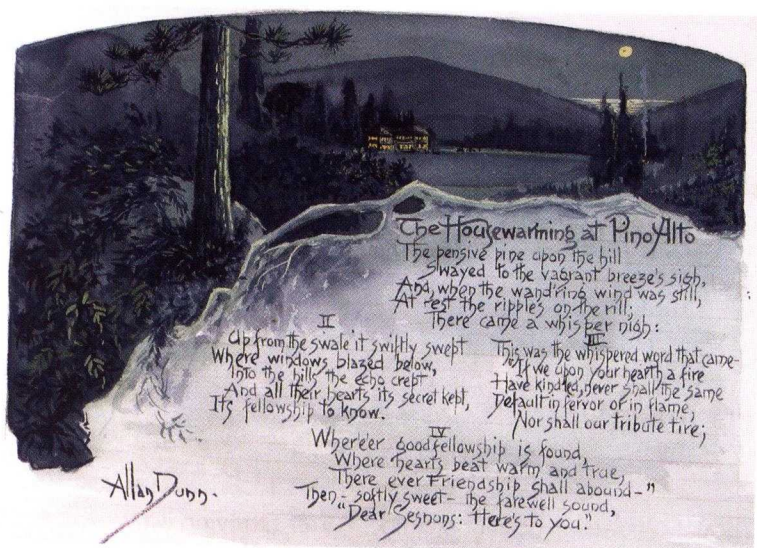 The Housewarming at Pino Alto
The pensive pine upon the hill
Swayed to the vagrant breeze's sigh,
And, when the wand'ring wind was still,
At rest the ripples on the rill,
There came a whisper nigh:
II
Up from the swale it swiftly swept
Where windows blazed below,
Into the hills the echo crept
And all their hearts its secret kept,
Its fellowship to know.
III
This was the whispered word that came-
"If we upon your hearth a fire
Have kindled, never shall the same
Default in fervor or in flame,
Nor shall our tribute tire;
IV
Where'er good fellowship is found,
Where hearts beat warm and true,
There ever Friendship shall abound-"
Then- softly sweet- the farewell sound,
"Dear Sesnons: Here's to you."
Allan Dunn-